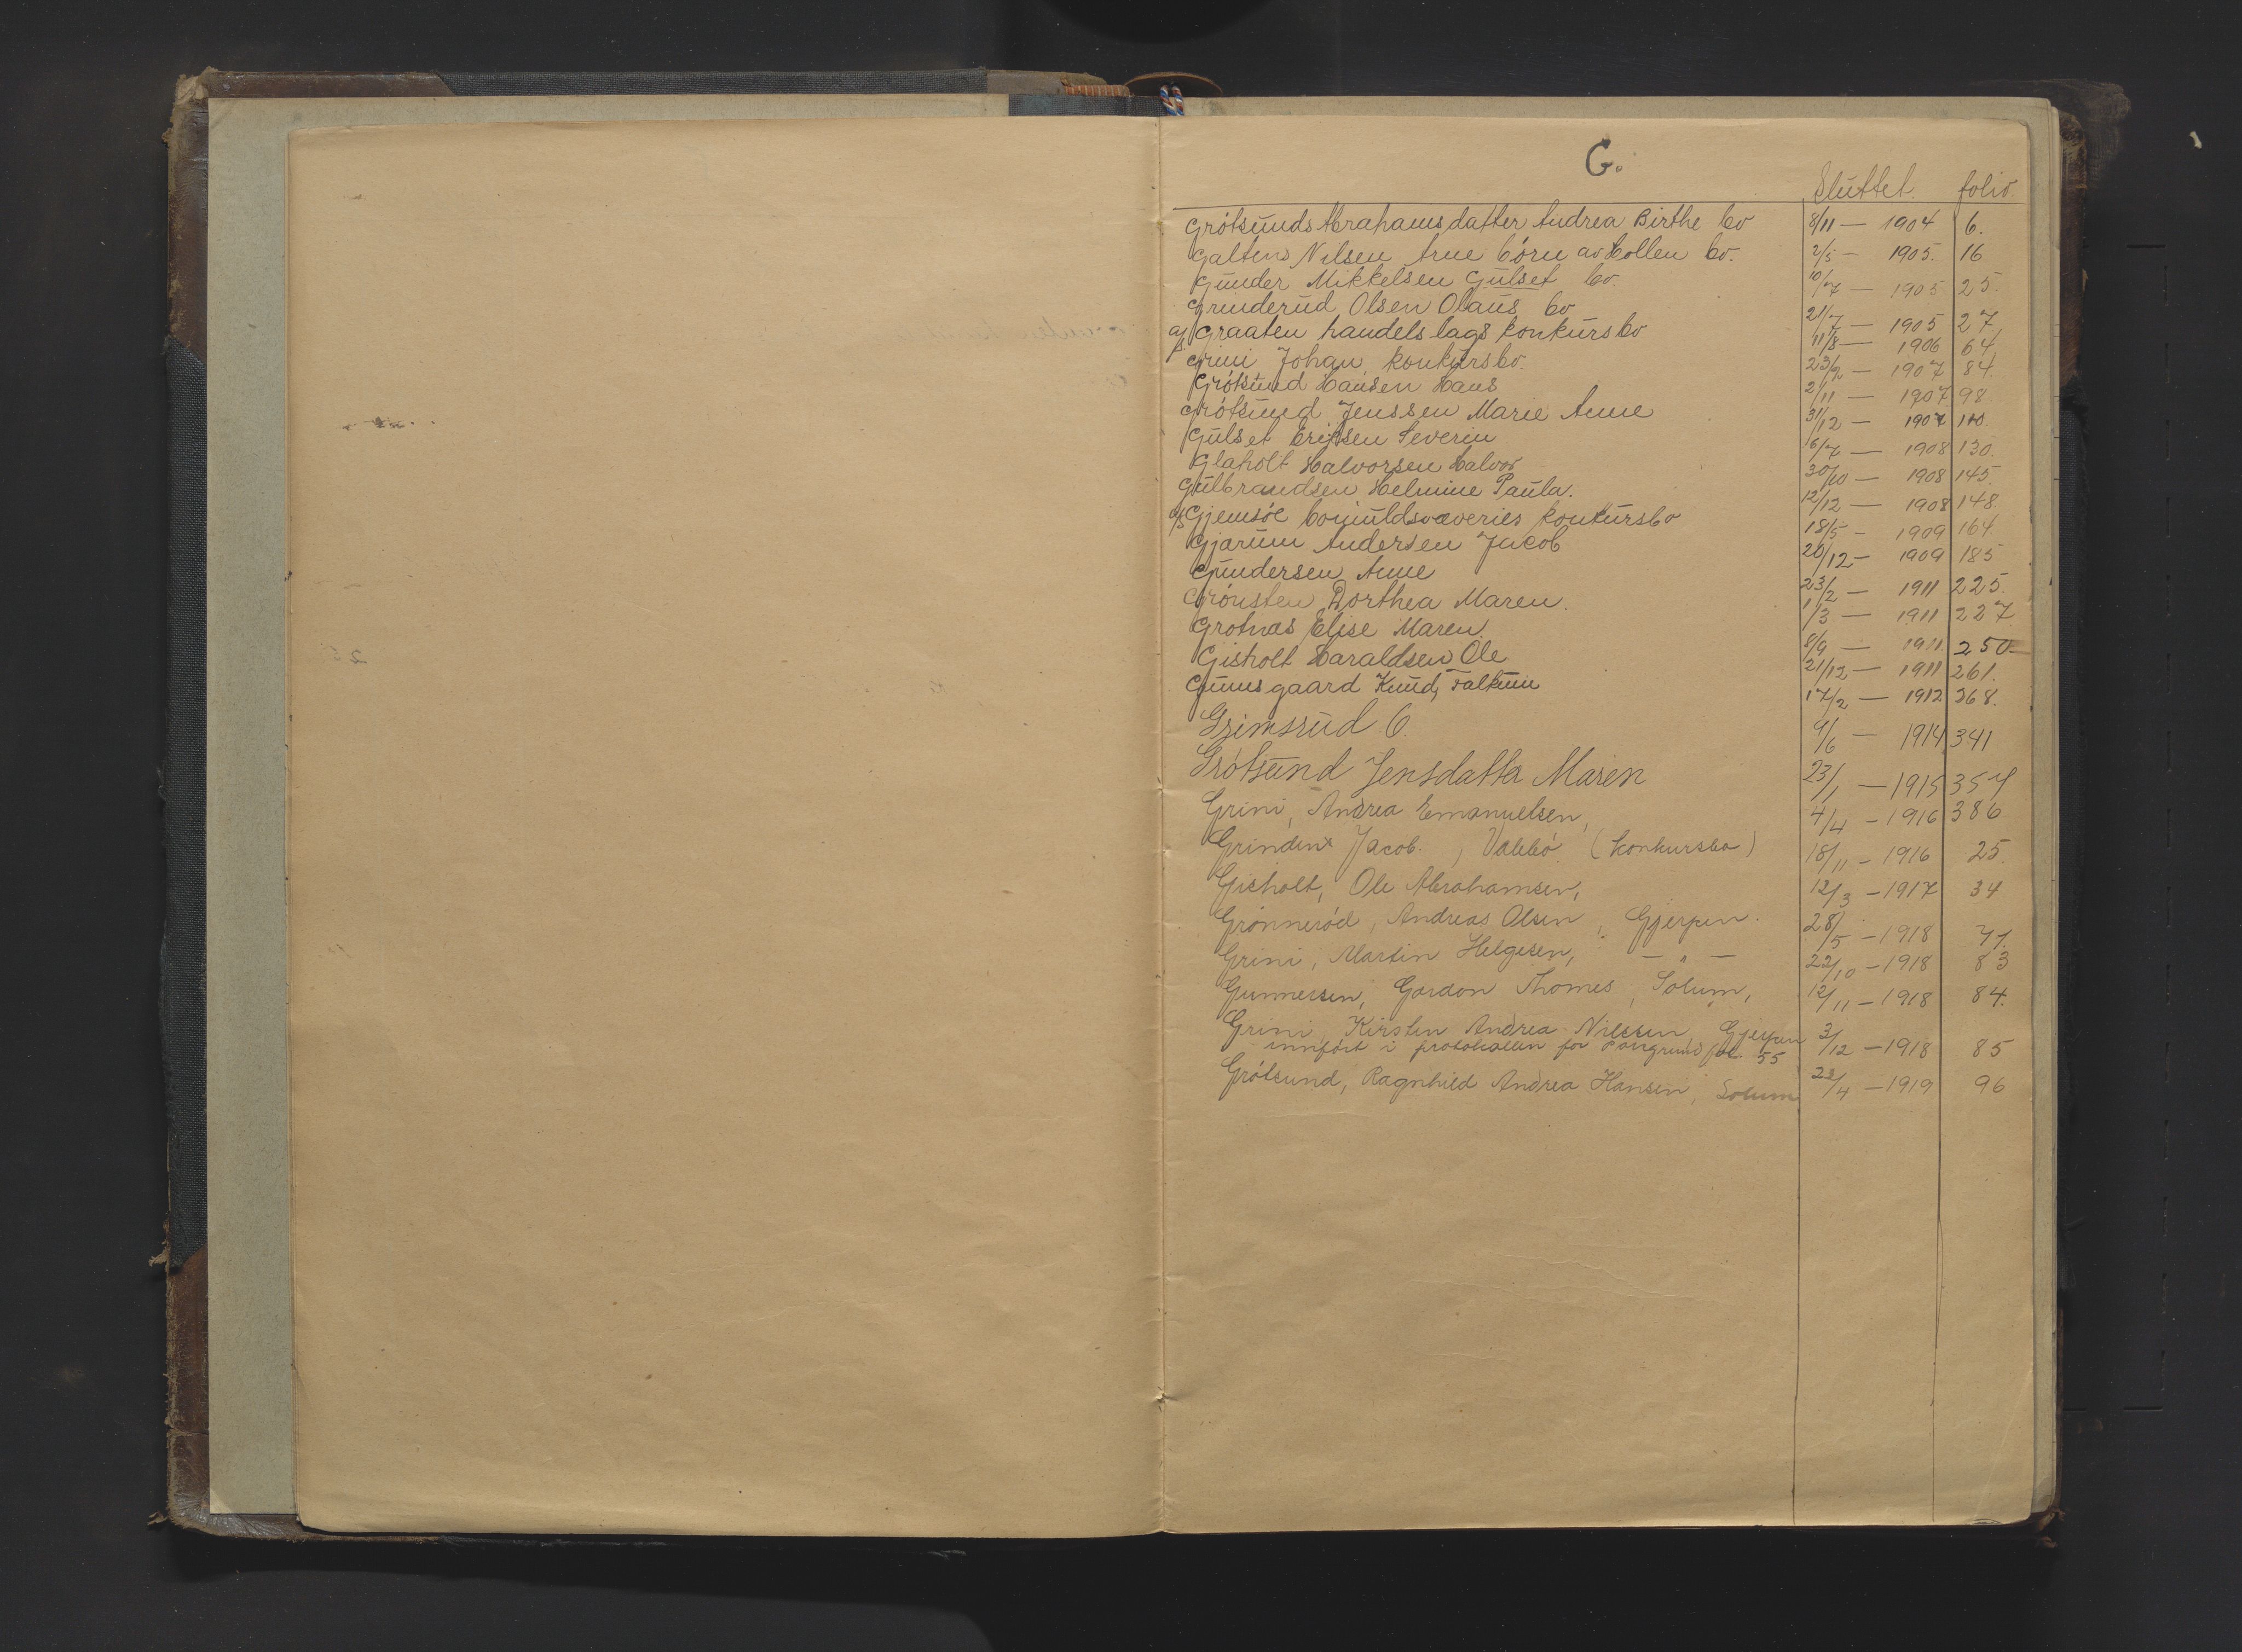 G.
Sluttet folio.
Grótsunds Abrahamsdatter Andrea Birthe bo 8/11 — 1904 6.
Galtens Nilsen Arne börn av Hollen bo. 2/5 — 1905. 16
Gunder Mikkelsen Gulset bo. 10/7 — 1905 25.
Gruderud Olsen Olaus bo 21/7 — 1905 27
a/s Graaten handelslags konkursbo 11/8 — 1906 64
Grini Johan konkursbo. 23/2 — 1907 84
Grótsund Hansen Hans 2/11 — 1907 98
Grótsund Jenssen Marie Anne 31/12 — 1907 110.
Gulset Eriksen Severin 16/7 — 1908 130.
Glaholt Halvorsen Halvor 30/10 — 1908 145.
Gulbrandsen Helmine Paula. 12/12 — 1908 148.
a/s Gjemsóe bomuldsvæveries konkursbo 18/5 — 1909 164.
Gjarum Andersen Jacob 20/12 — 1909 185
Gundersen Anne 23/2 — 1911 225.
Grónsten Dorthea Maren. 1/3 — 1911 227
Grotnæs Elise Maren. 8/9 — 1911 250
Gisholt Haraldsen Ole 21/12 — 1911 261.
Knud, Falkum 17/2 — 1912 268.
Grimsrud O. 9/6 — 1914 341
Grótsund Jensdatter Maren 23/1 — 1915 357
Grini, Andrea Emanuelsen, 4/4 — 1916 386
Jacob, Valebö (konkursbo) 18/11 — 1916 25.
Gisholt, Ole Abrahamsen, 12/3 — 1917 34
Grönneród, Andreas Olsen, Gjerpen. 28/5 — 1918 71.
Grini, Martin Helgesen, — " — 22/10 — 1918 83
Gunnersen, Gordon Thomes, Solum, 12/11 — 1918 84.
Grini, Kirsten Andrea Nilssen, Gjerpen 3/12 — 1918 85
innfört i protokollen for Porsgrund fol. 55
Grótsund, Ragnhild Andrea Hansen, Solum 22/4 — 1919 96